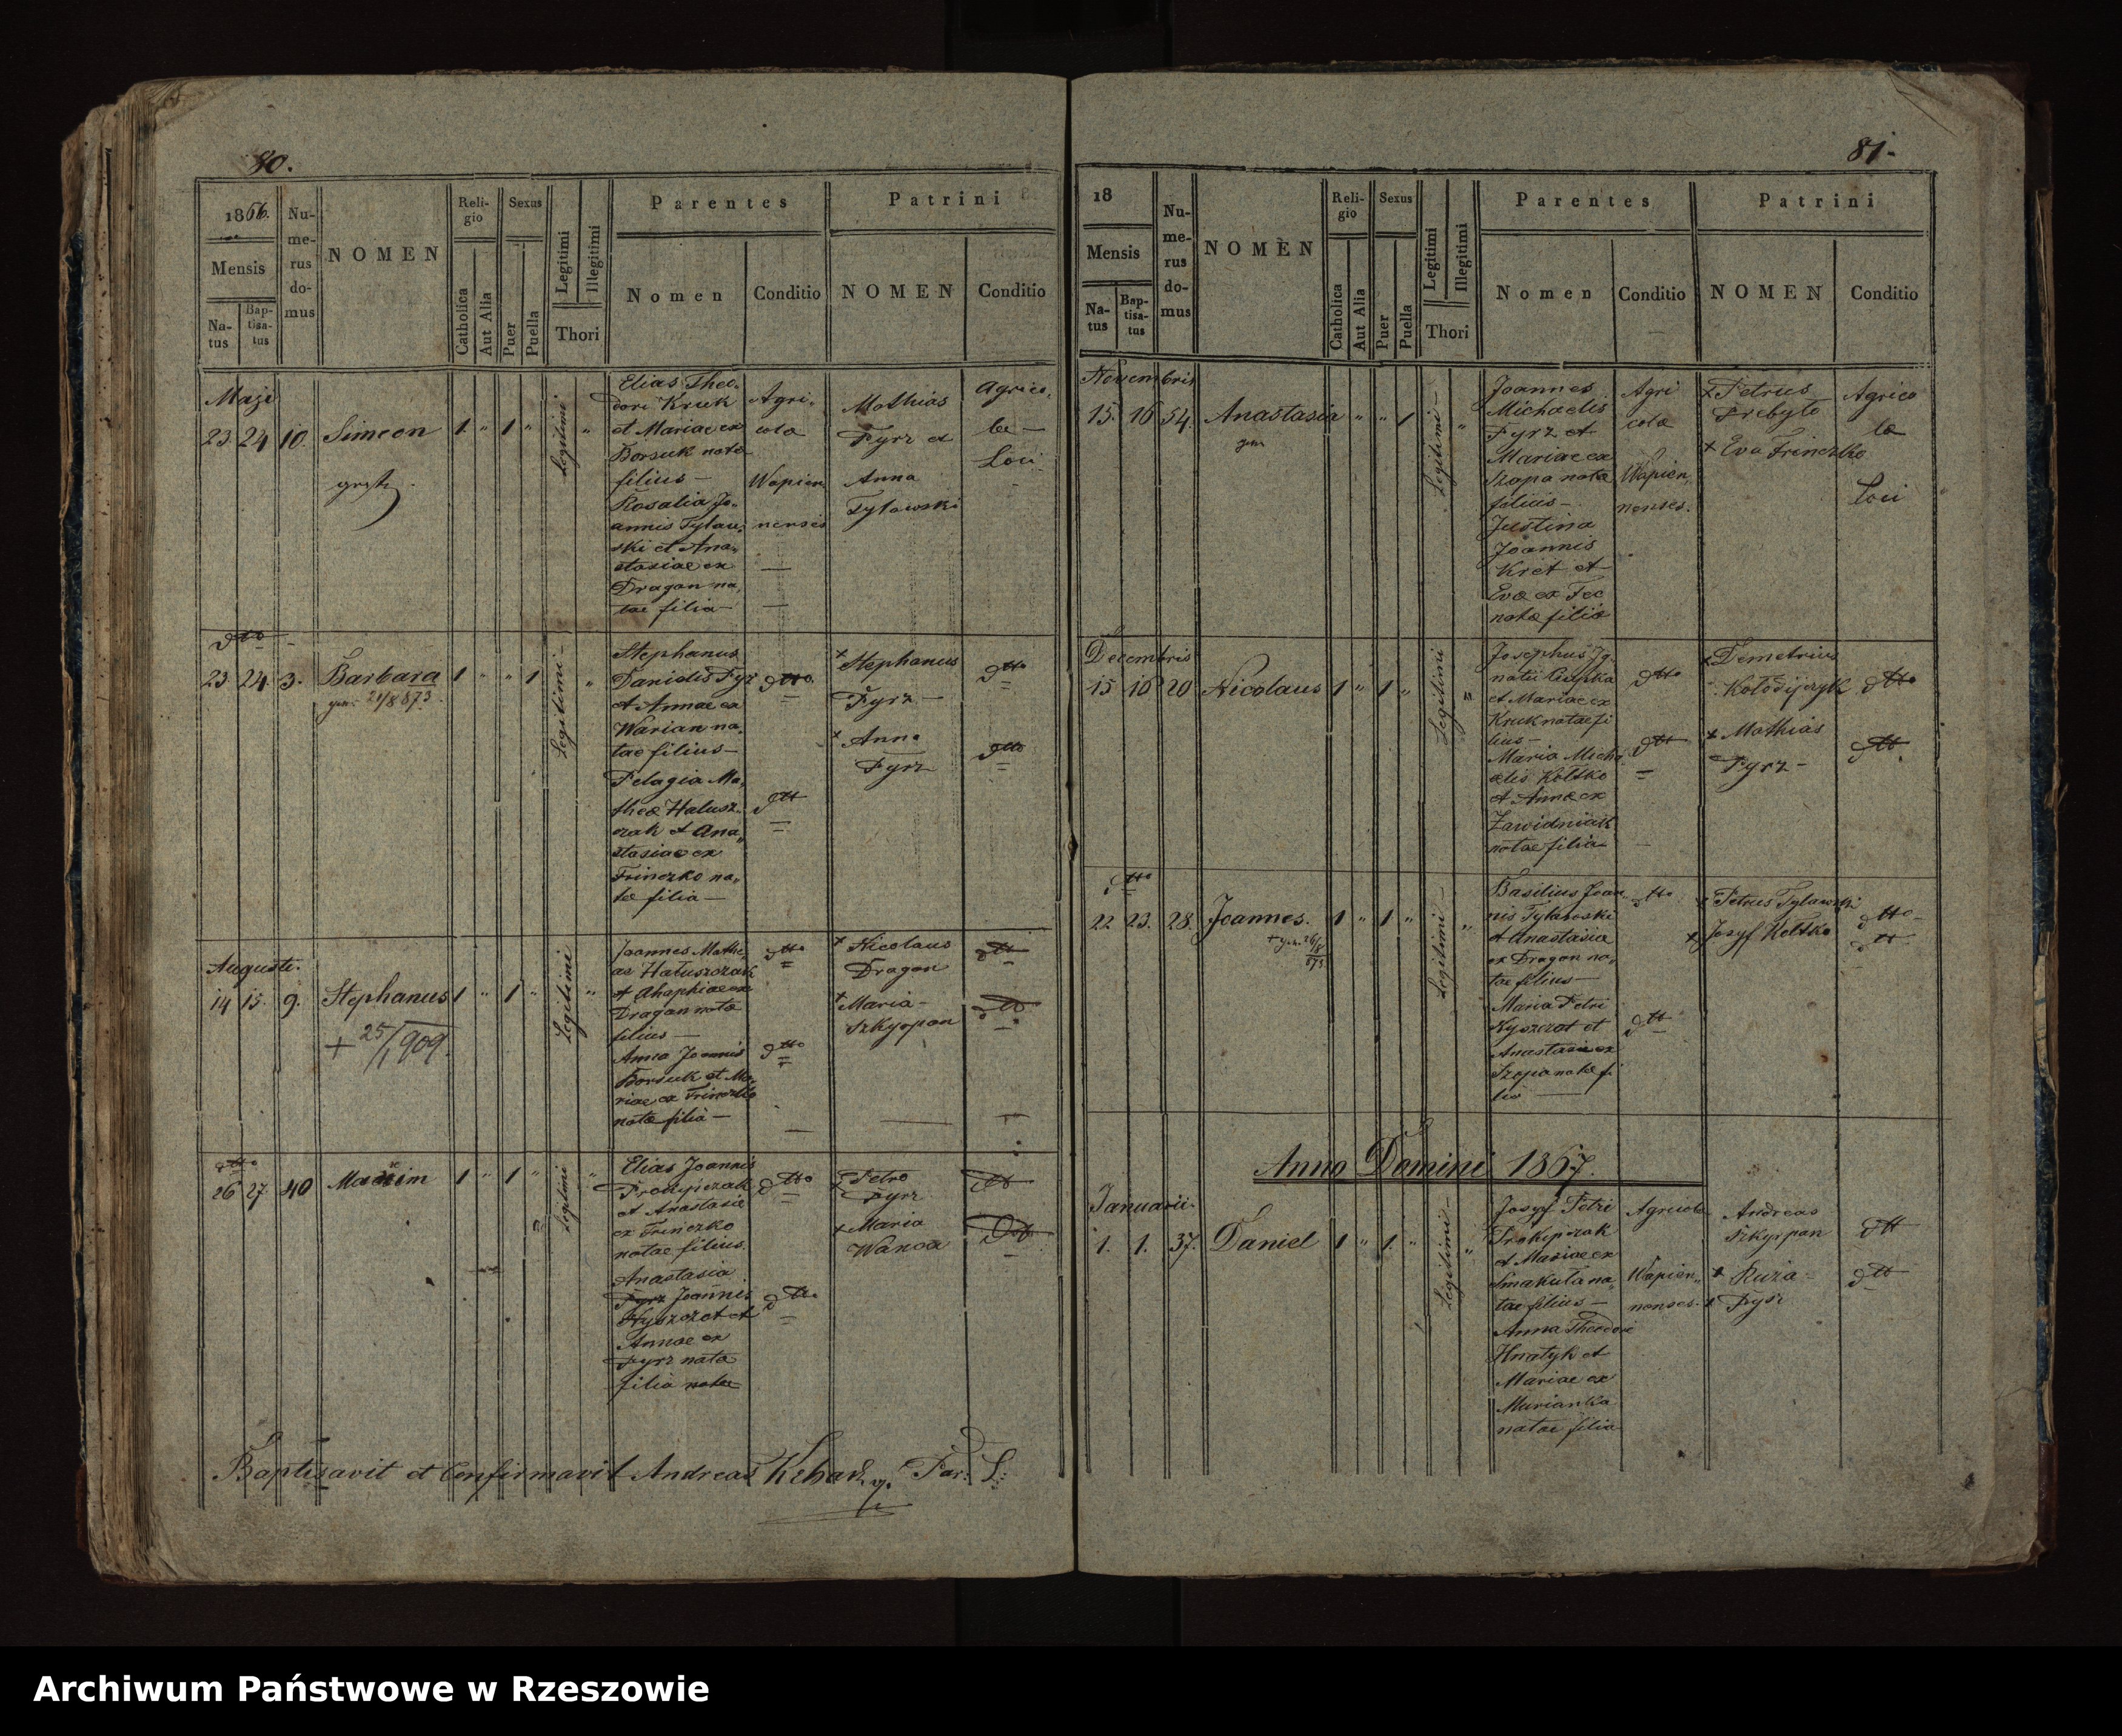 80.
1866.
Mensis
Na-
tus
Bap-
tisa-
tus
Nu-
me-
rus
do-
mus
NOMEN
Reli-
gio
Catholica
Aut Alia
Sexus
Puer
Puella
Legitimi
Illegitimi
Thori
Parentes
Nomen
Conditio
Patrini
NOMEN
Conditio
Maji
23 24 10. Simeon 1 " 1 "
Legitimi
"
Elias Theo-
dori Kruk
et Mariae ex
Borsuk natae
filius —
Rosalia Jo-
annis Tylaw-
ski et Ana-
stasiae ex
Dragan na-
tae filia —
Agri-
colae
Wapien
nenses
Mathias
Fyrz et
Anna
Tylawski
Agrico-
lae —
Loci
dtto
23 24. 3. Barbara 1 " " 1
21/8 873
Legitimi
"
Stephanus
Danielis Fyrz
et Annae ex
Warian na-
tae filius —
Pelagia Ma-
thei Halusz-
czak et Ana-
stasiae ex
Trinczko na-
tae filia —
dtto
dtto
+ Stephanus
Fyrz —
+ Anna
Fyrz
dtto
dtto
Augusti.
14 15. 9. Stephanus 1 " 1 "
+ 25/1 909.
Legitimi
"
Joannes Mathi-
ae Haluszczak
et Ahaphiae ex
Dragan natae
filius —
Anna Joannis
Borsuk et Ma-
riae ex Trinczko
natae filia —
dtto
dtto
+ Nicolaus
Dragan
+ Maria —
Szkyrpan
dtto
dtto
dtto
26 27. 40 Maxim 1 " 1 "
Legitimi
"
Elias Joannis
Prokipczak
et Anastasiae
ex Trinczko
natae filius.
Anastasia
Fyrz Joannis
Hyszczot et
Annae ex
Fyrz nata
filia natae
dtto
dtto
Petro
Fyrz
+ Maria
Wanca
dtto
dtto
Baptisavit et Confirmavit Andreas Par: L:
81.
18
Mensis
Na-
tus
Bap-
tisa-
tus
Nu-
me-
rus
do-
mus
NOMEN
Reli-
gio
Catholica
Aut Alia
Sexus
Puer
Puella
Legitimi
Illegitimi
Thori
Parentes
Nomen
Conditio
Patrini
NOMEN
Conditio
Novembris
15. 16 54. Anastasia " " 1
Legitimi —
"
Joannes
Michaelis
Fyrz et
Mariae ex
Szopa natae
filius —
Justina
Joannis
Kret et
Evae ex Fec
natae filia
Agri
colae
Wapien-
nenses.
+ Petrus
Przybyto
+ Eva Trinczko
Agrico
lae
Loci
Decembris
15 16 20 Nicolaus 1 " 1 "
Legitimi
"
Josephus Ig-
natii
et Mariae ex
Kruk natae fi
lius —
Maria Micha
elis Koltko
et Annae ex
Zawidniak
natae filia
dtto
dtto
+ Demetrius
Kołodijczyk
+ Mathias
Fyrz —
dtto
dtto
dtto
22 23. 28. Joannes. 1 " 1 "
Legitimi —
"
Basilius Joan-
nis Tylawski
et Anastasiae
ex Dragan na-
tae filius —
Maria Petri
Hyszczot et
Anastasiae ex
Szopa natae fi
lia
dtto
dtto
+ Petrus Tylawski
+ Josyf Koltko
dtto
dtto
Anno Domini 1867.
Januarii.
1. 1. 37. Daniel 1 " 1. "
Legitimi —
"
Josyf Petri
Prokipczak
et Mariae ex
Smakuła na-
tae filius —
Anna Theodori
Hnatyk et
Mariae ex
Murianka
natae filia
Agricolae
Wapien-
nenses.
Andreas
Szkyrpan
+ Ruzia
+ Fyrz
dtto
dtto
Archiwum Państwowe w Rzeszowie